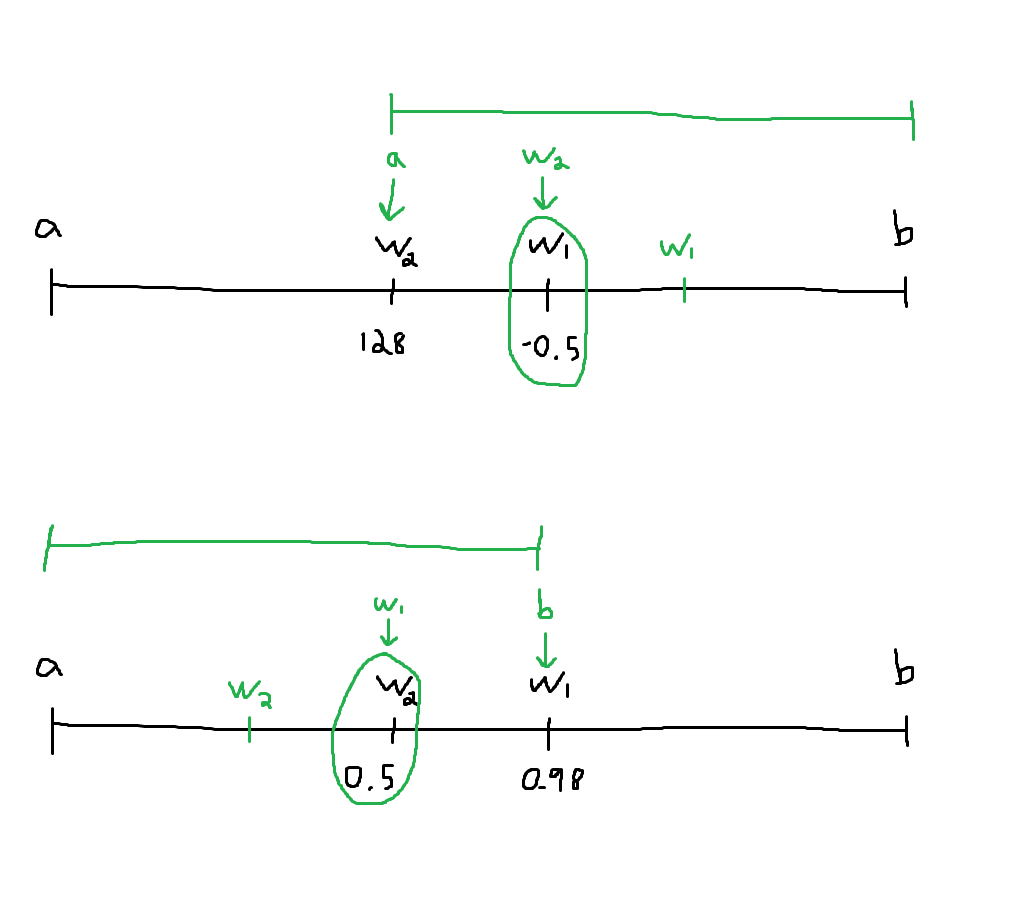 a w₂
a w₂ w₁ w₁ b
128 -0.5
w₁ b
a w₂ w₂ w₁ b
0.5 0.98